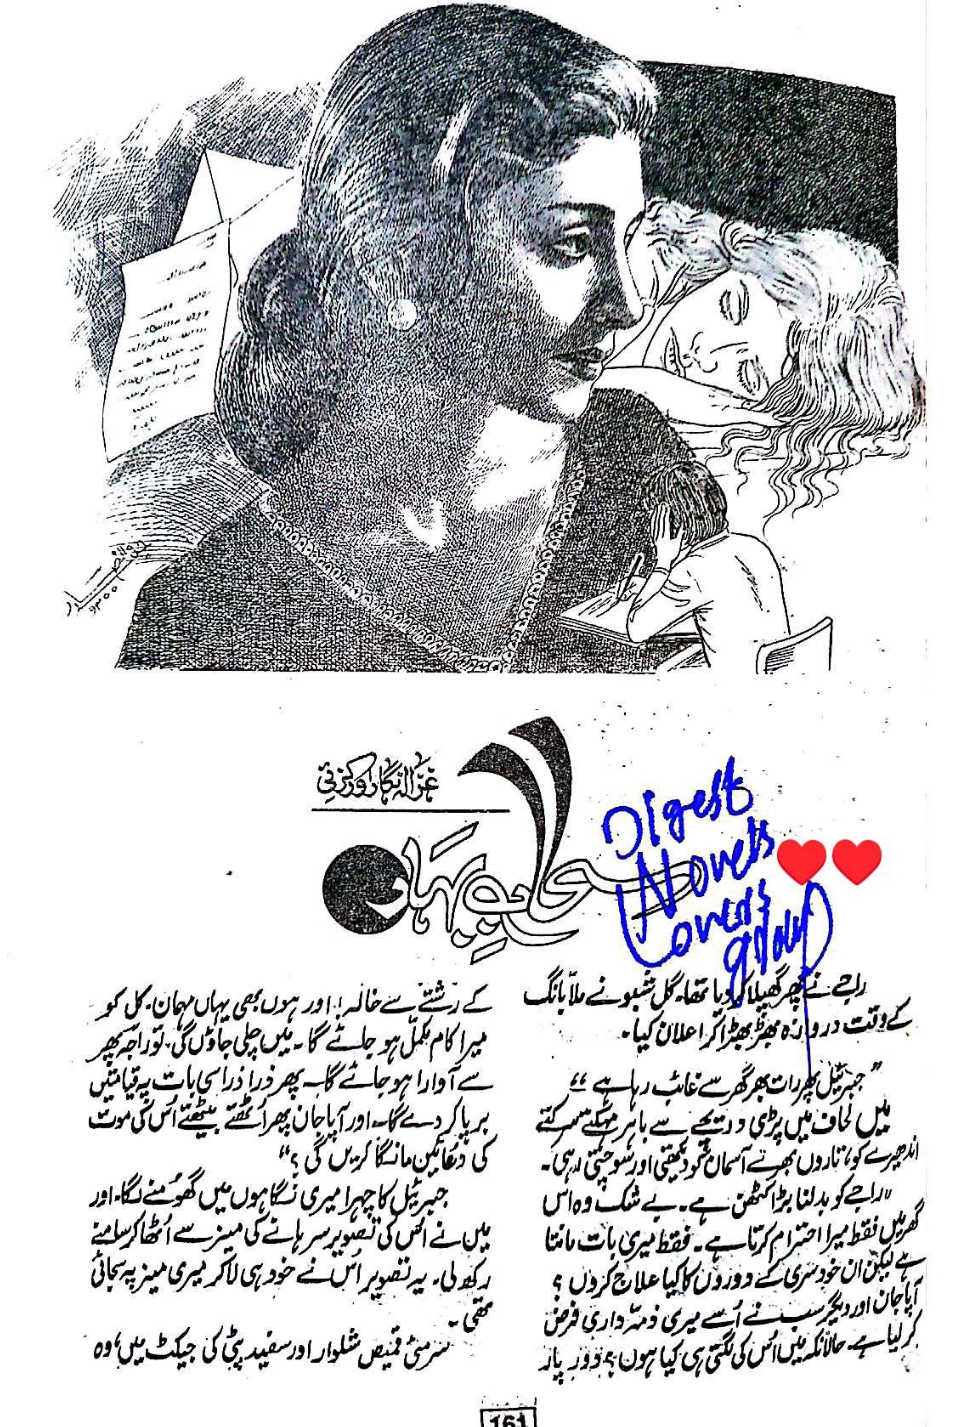 غزالہ نگار اورکزئی
Digest
Novels
Lovers
group ❤️❤️
راجے نے پھر گھپلا کر دیا تھا۔ گل شبو نے ملا بانگ
کے وقت دروازہ بھڑبھڑا کر اعلان کیا۔
"جبرئیل پھر رات بھر گھر سے غائب رہا ہے"
میں لحاف میں پڑی دریچے سے باہر
اندھیرے کو، تاروں بھرے آسمان کو دیکھتی اور سوچتی رہی۔
"راجے کو بدلنا بڑا کٹھن ہے۔ بے شک وہ اس
گھر میں فقط میرا احترام کرتا ہے۔ فقط میری بات مانتا
ہے لیکن ان خود سری کے دوروں کا کیا علاج کروں؟
آپا جان اور دیگر سب نے اُسے میری ذمہ داری فرض
کر لیا ہے۔ حالانکہ میں اُس کی لگتی ہی کیا ہوں؟ دور پار
کے رشتے سے خالہ! اور ہوں بھی یہاں مہمان۔ کل کو
میرا کام مکمل ہو جائے گا۔ میں چلی جاؤں گی۔ تو راجہ پھر
سے آوارا ہو جائے گا۔ پھر ذرا ذرا سی بات پہ قیامتیں
برپا کر دے گا۔ اور آپا جان پھر اُٹھتے بیٹھتے اُس کی موت
کی دعائیں مانگا کریں گی؟"
جبرئیل کا چہرا میری نگاہوں میں گھومنے لگا۔ اور
میں نے اُس کی تصویر سرہانے کی میز سے اُٹھا کر سامنے
رکھ لی۔ یہ تصویر اُس نے خود ہی لا کر میری میز پہ سجائی
تھی۔
سرمئی قمیض شلوار اور سفید پٹی کی جیکٹ میں، وہ
161